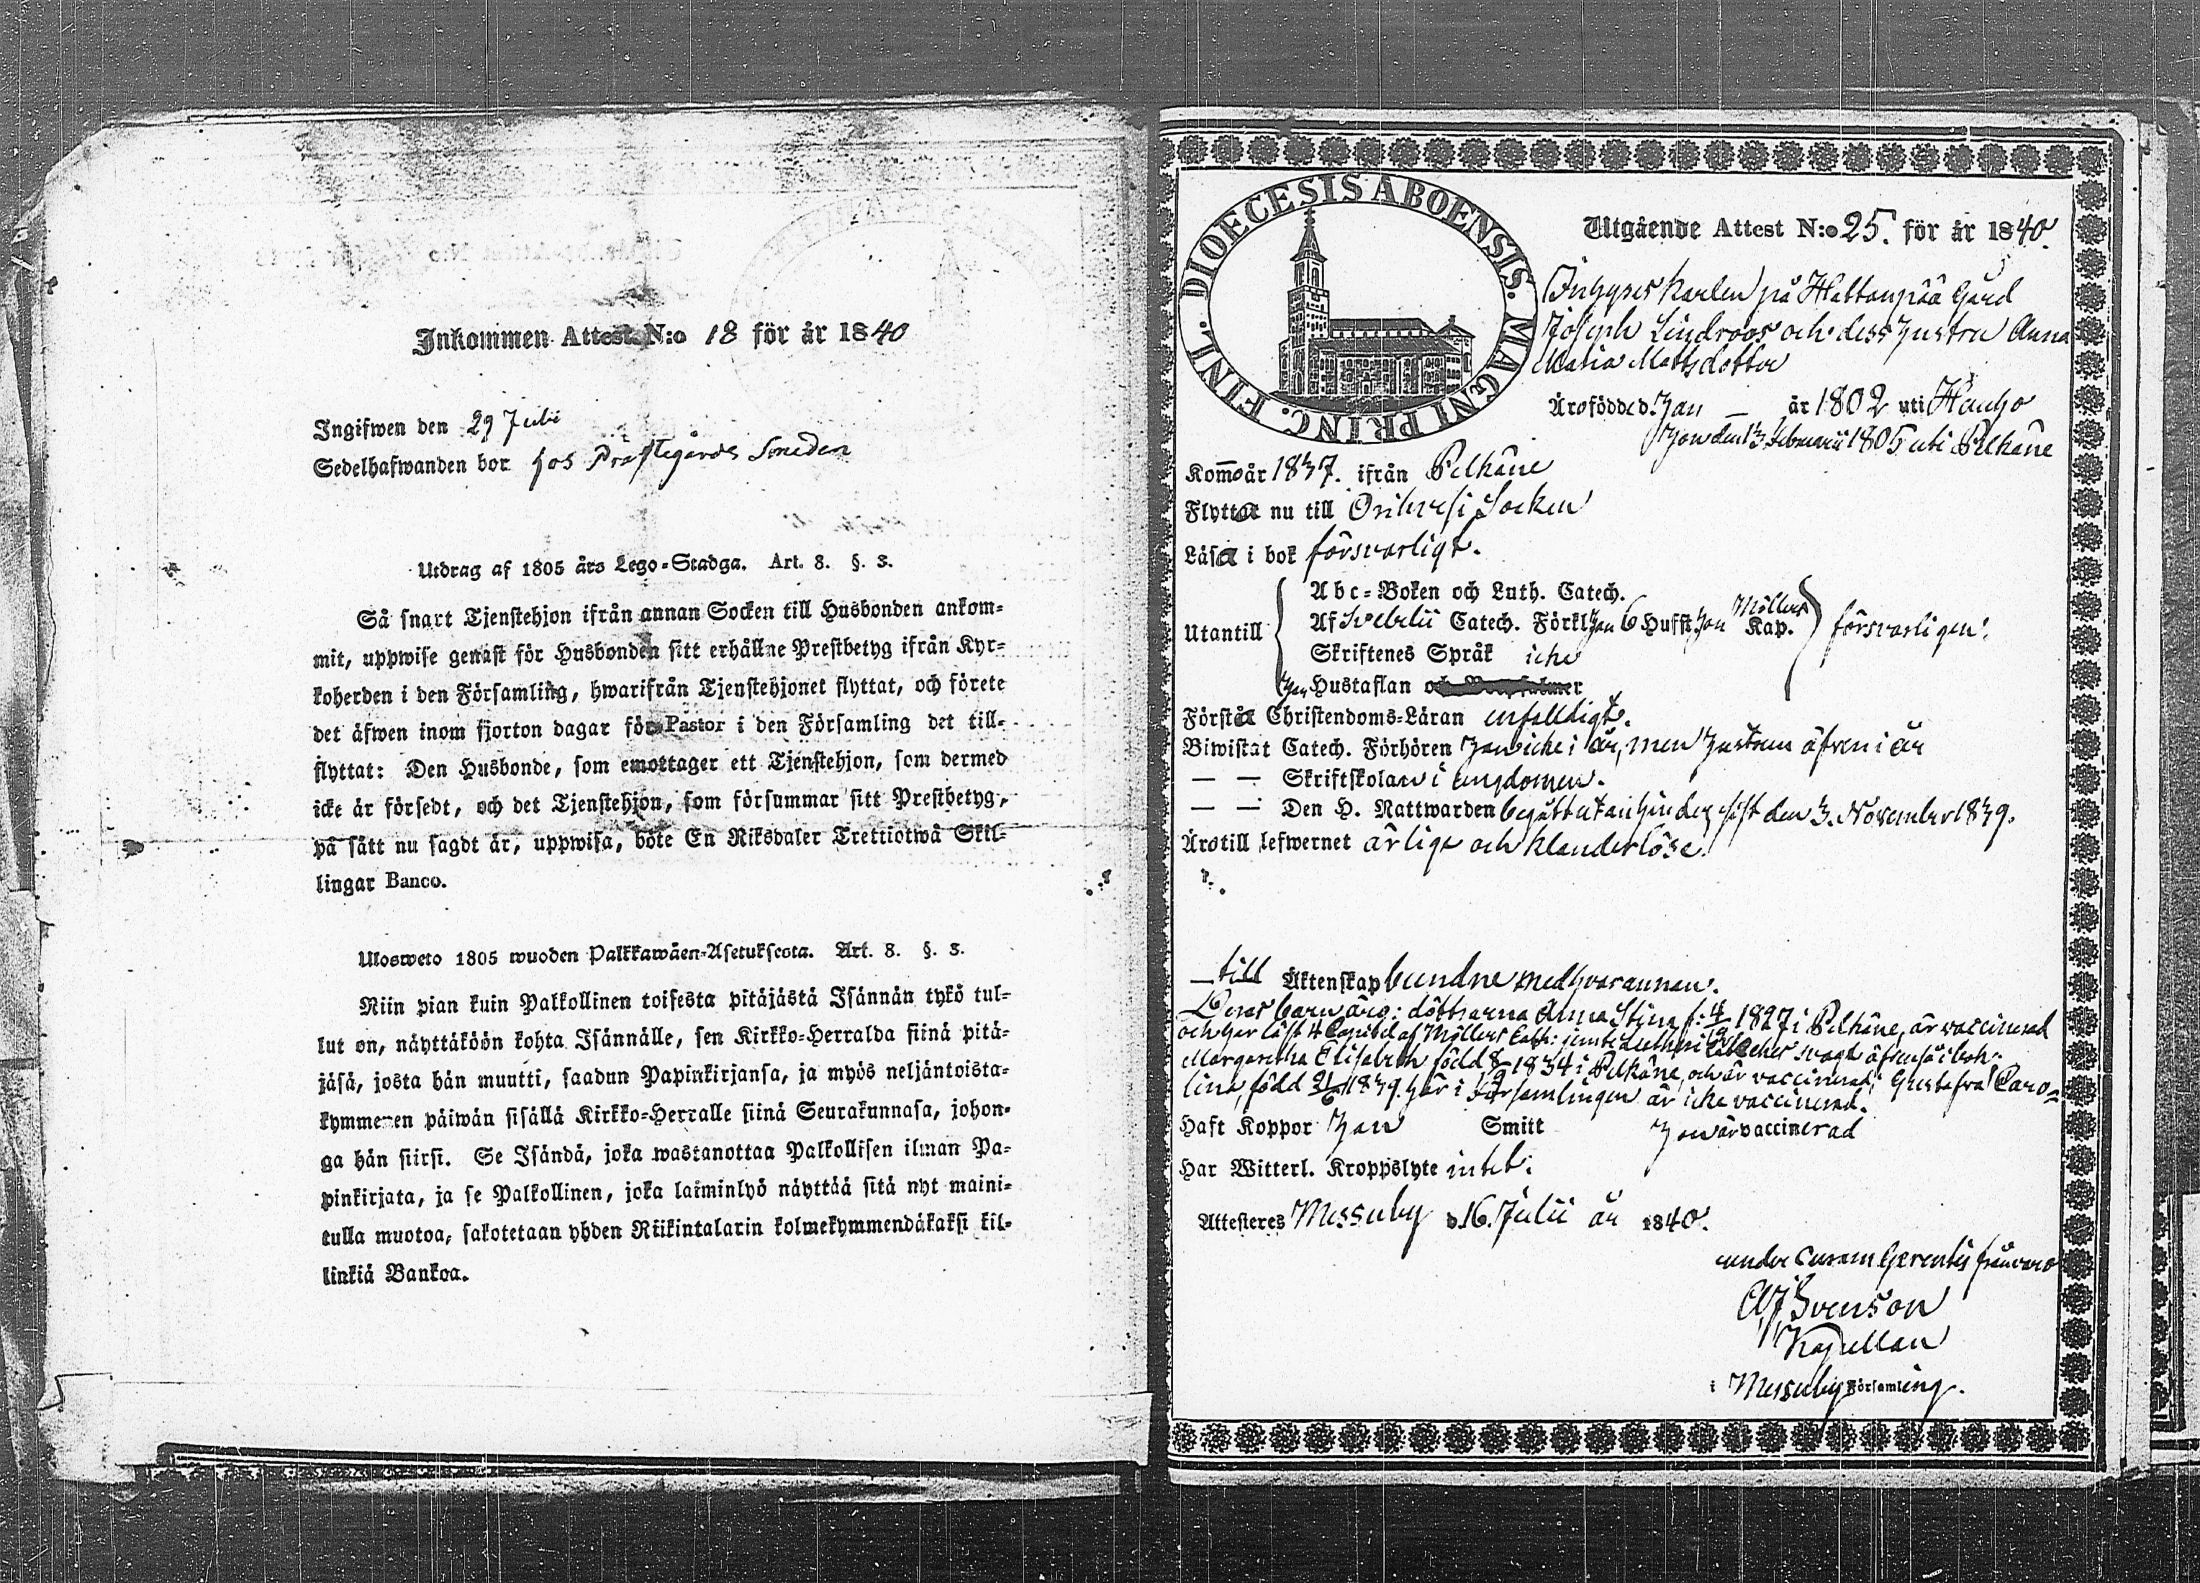 Inkommen Attest N:o 18 för år 1840
Ingifwen den 29 Julii
Sedelhafwanden bor hos Prestegårds Smeden
Utdrag af 1805 års Lego-Stadga. Art. 8. §. 3.
Så snart Tjenstehjon ifrån annan Socken till Husbonden ankom-
mit, uppwise genast för Husbonden sitt erhållne Prestbetyg ifrån Kyr-
koherden i den Församling, hwarifrån Tjenstehjonet flyttat, och förete
det äfwen inom fjorton dagar för Pastor i den Församling det till-
flyttat: Den Husbonde, som emottager ett Tjenstehjon, som dermed
icke är försedt, och det Tjenstehjon, som försummar sitt Prestbetyg,
på sätt nu sagdt är, uppwisa, böte En Riksdaler Trettiotwå Skil-
lingar Banco.
Ulosweto 1805 wuoden Palkkawäen-Asetuksesta. Art. 8. §. 3.
Niin pian kuin Palkollinen toisesta pitäjästä Isännän tykö tul-
lut on, näyttäköön kohta Isännälle, sen Kirkko-Herralda siinä pitä-
jäsä, josta hän muutti, saadun Papinkirjansa, ja myös neljäntoista-
kymmenen päiwän sisällä Kirkko-Herralle siinä Seurakunnasa, johon-
ga hän siirsi. Se Isändä, joka wastanottaa Palkollisen ilman Pa-
pinkirjata, ja se Palkollinen, joka laiminlyö näyttää sitä nyt maini-
tulla muotoa, sakotetaan yhden Riikintalarin kolmekymmendäkaksi kil-
linkiä Bankoa.
DIOECESIS ABOENSIS. MAGNI PRINC. FINL.
Utgående Attest N:o 25. för år 1840.
Inhyses Karlen på Hattanpää Gård
Joseph Lindroos och dess hustru Anna
Maria Mattsdotter
Äro födde d. han — år 1802 uti Hauho
hon den 13 Februarii 1805 uti Pelkäne
Kommo år 1837. ifrån Pelkäne
Flytta nu till Orihvesi Socken
Läsa i bok försvarligt.
Utantill
Abc-Boken och Luth. Catech.
Af Svebelii Catech. Förkl. han 6 Hufst. hon Möllers Kap. försvarligen.
Skriftenes Språk icke
han Hustaflan
Förstå Christendoms-Läran enfalldigt.
Biwistat Catech. Förhören han icke i år, men hustrun äfven i år
— — Skriftskolan i ungdomen.
— — Den H. Nattwarden begått utan hinder, sist den 3. November 1839.
Äro till lefwernet ärlige och klanderlöse.
— till Äktenskap bundne med hvarannan.
Deras barn äro: döttrarna Anna Stina f. 4/12 1827 i Pelkäne, är vaccinerad
och har läst 4 Capitel af Möllers Cath: jemte Lutheri Cateches svagt äfvenså i bok.
Margaretha Elisabeth född 8/9 1834 i Pelkäne, och är vaccinerad; Gustafva Caro=
lina, född 21/6 1839. här i Församlingen är icke vaccinerad.
Haft Koppor han Smitt hon är vaccinerad
Har Witterl. Kroppslyte intet.
Attesteres Messuby d. 16. Julii år 1840.
under Curam Gerentis frånvaro
Svenson
Kapellan
i Messuby Församling.